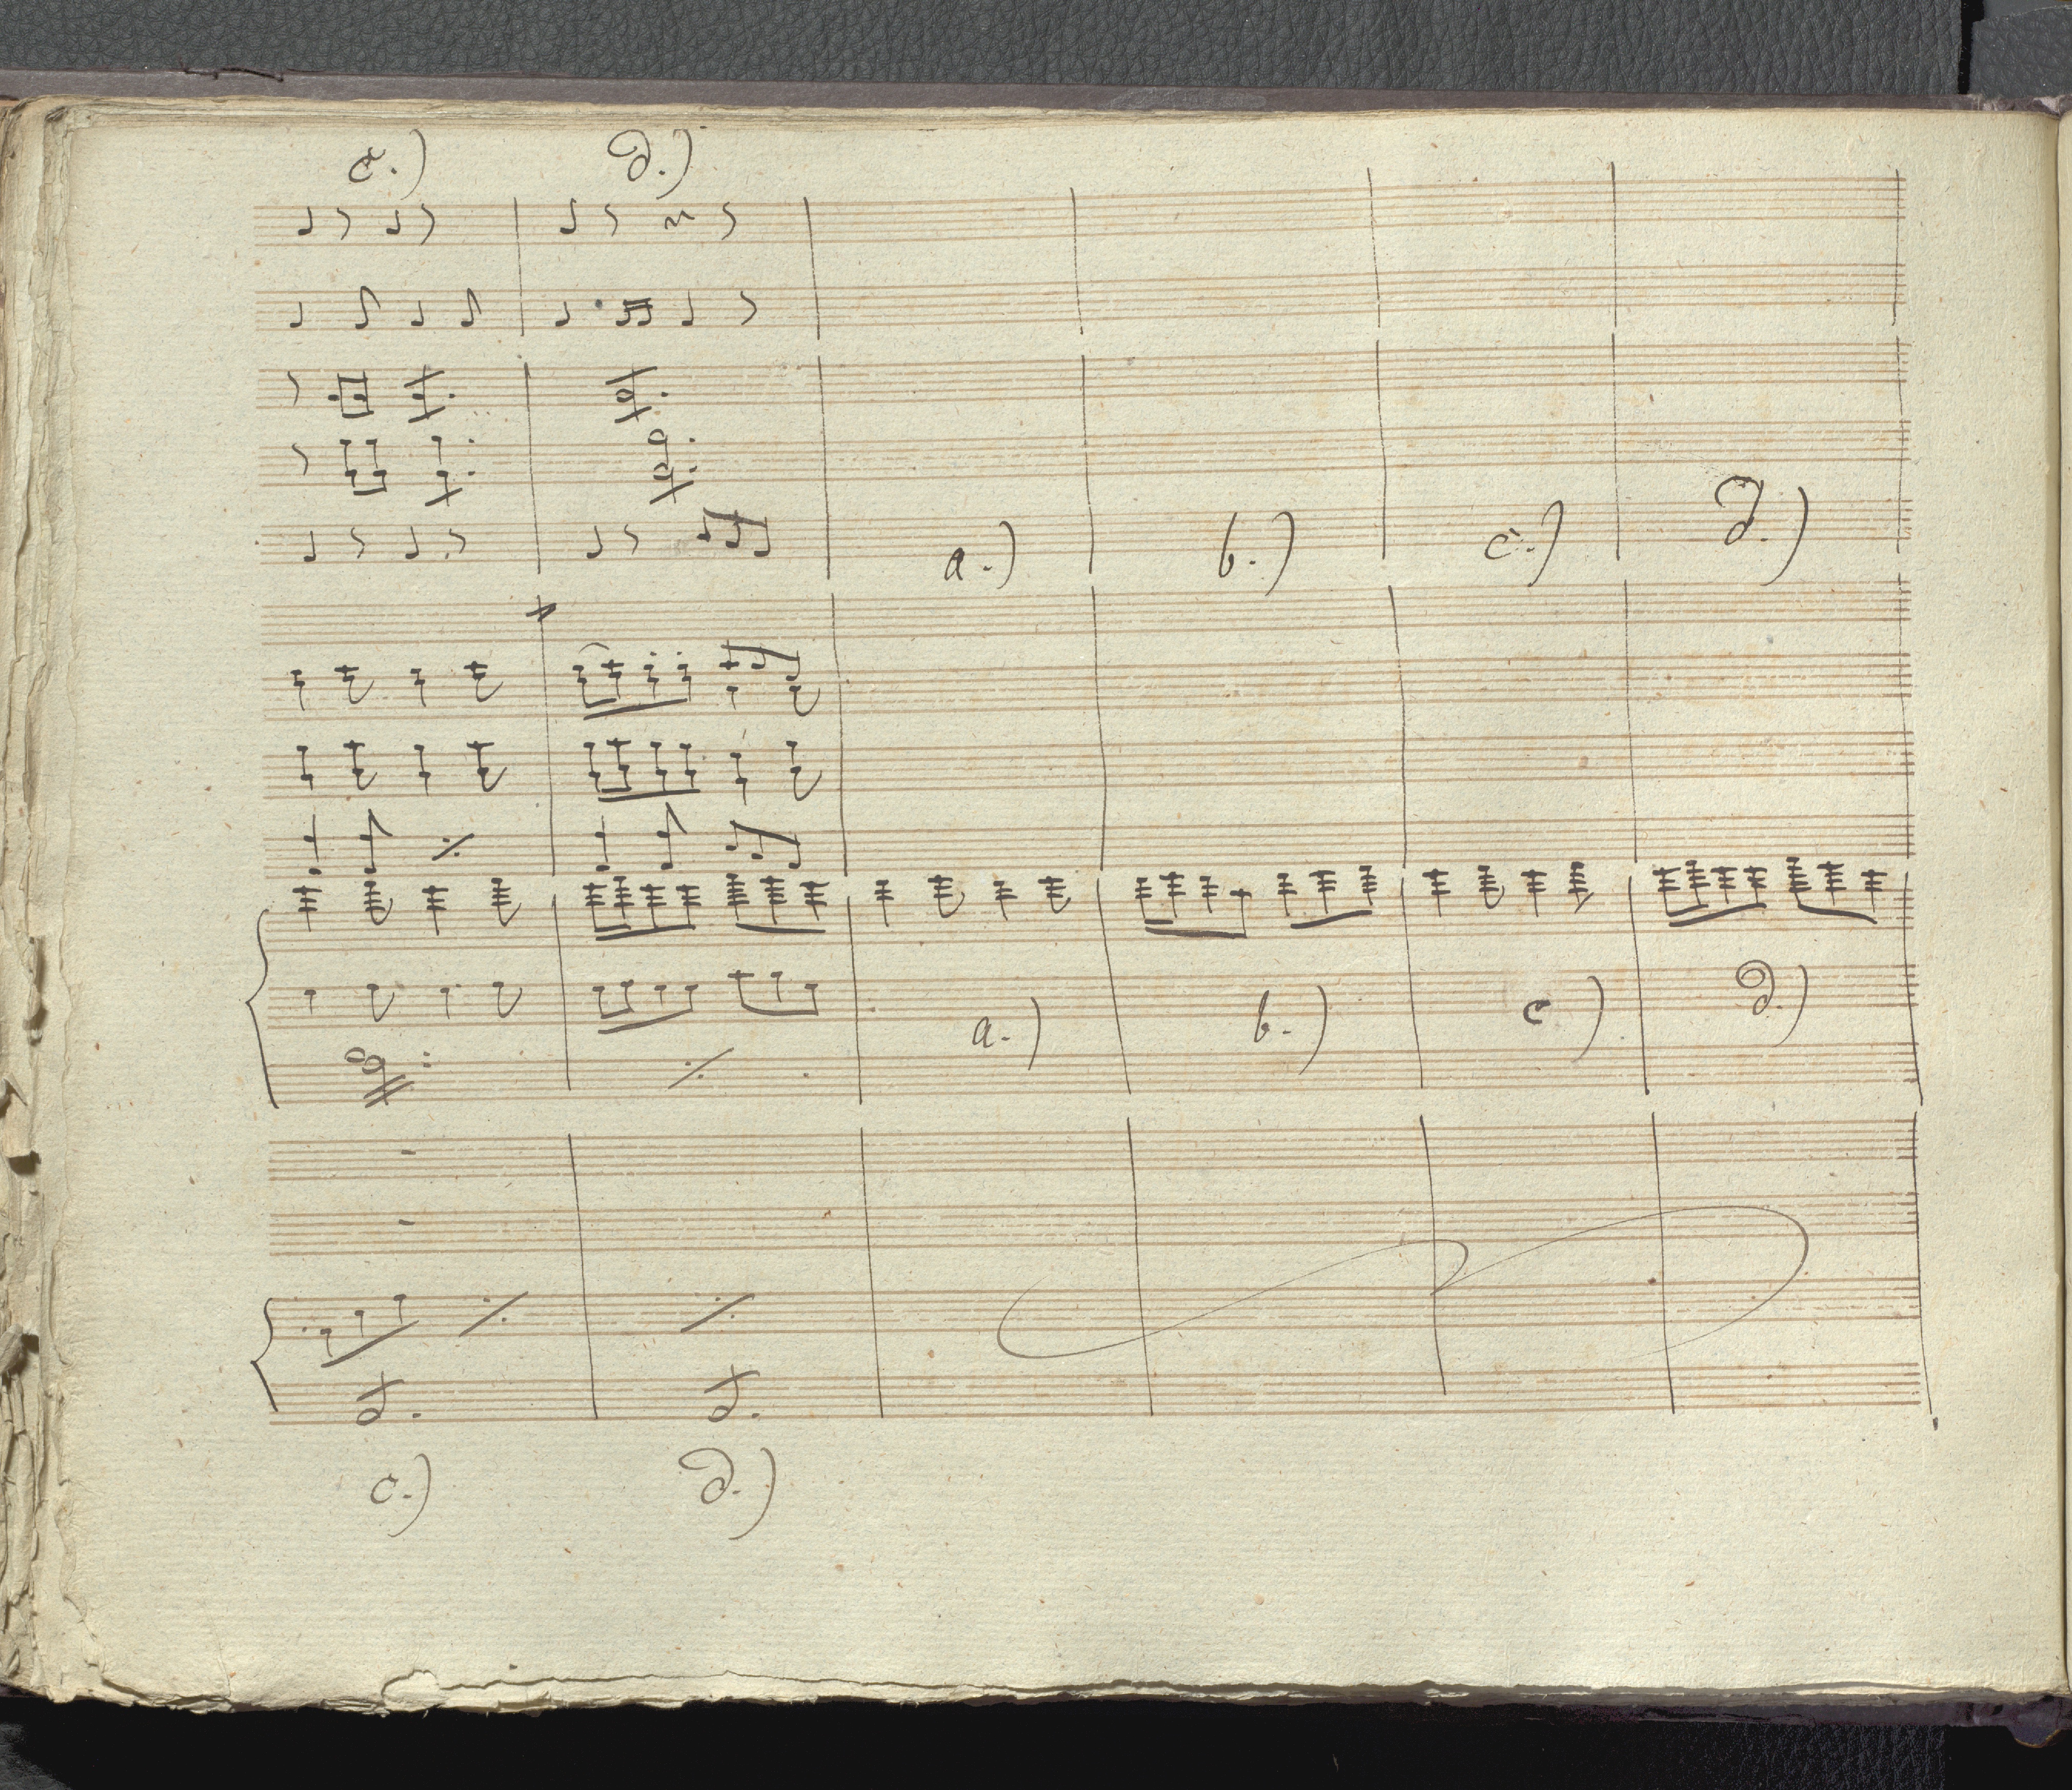 c.) d.)
a.) b.) c.) d.)
a.) b.) c) d.)
c.) d.)